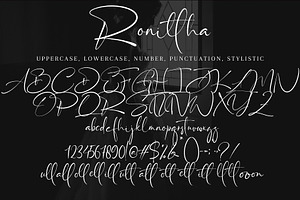 Ronittha
UPPERCASE, LOWERCASE, NUMBER, PUNCTUATION, STYLISTIC
ABCDEFGHIJKLMN
OPQRSTUVWXYZ
abcdefghijklmnopqrstuvwxyz
1234567890!@#$%